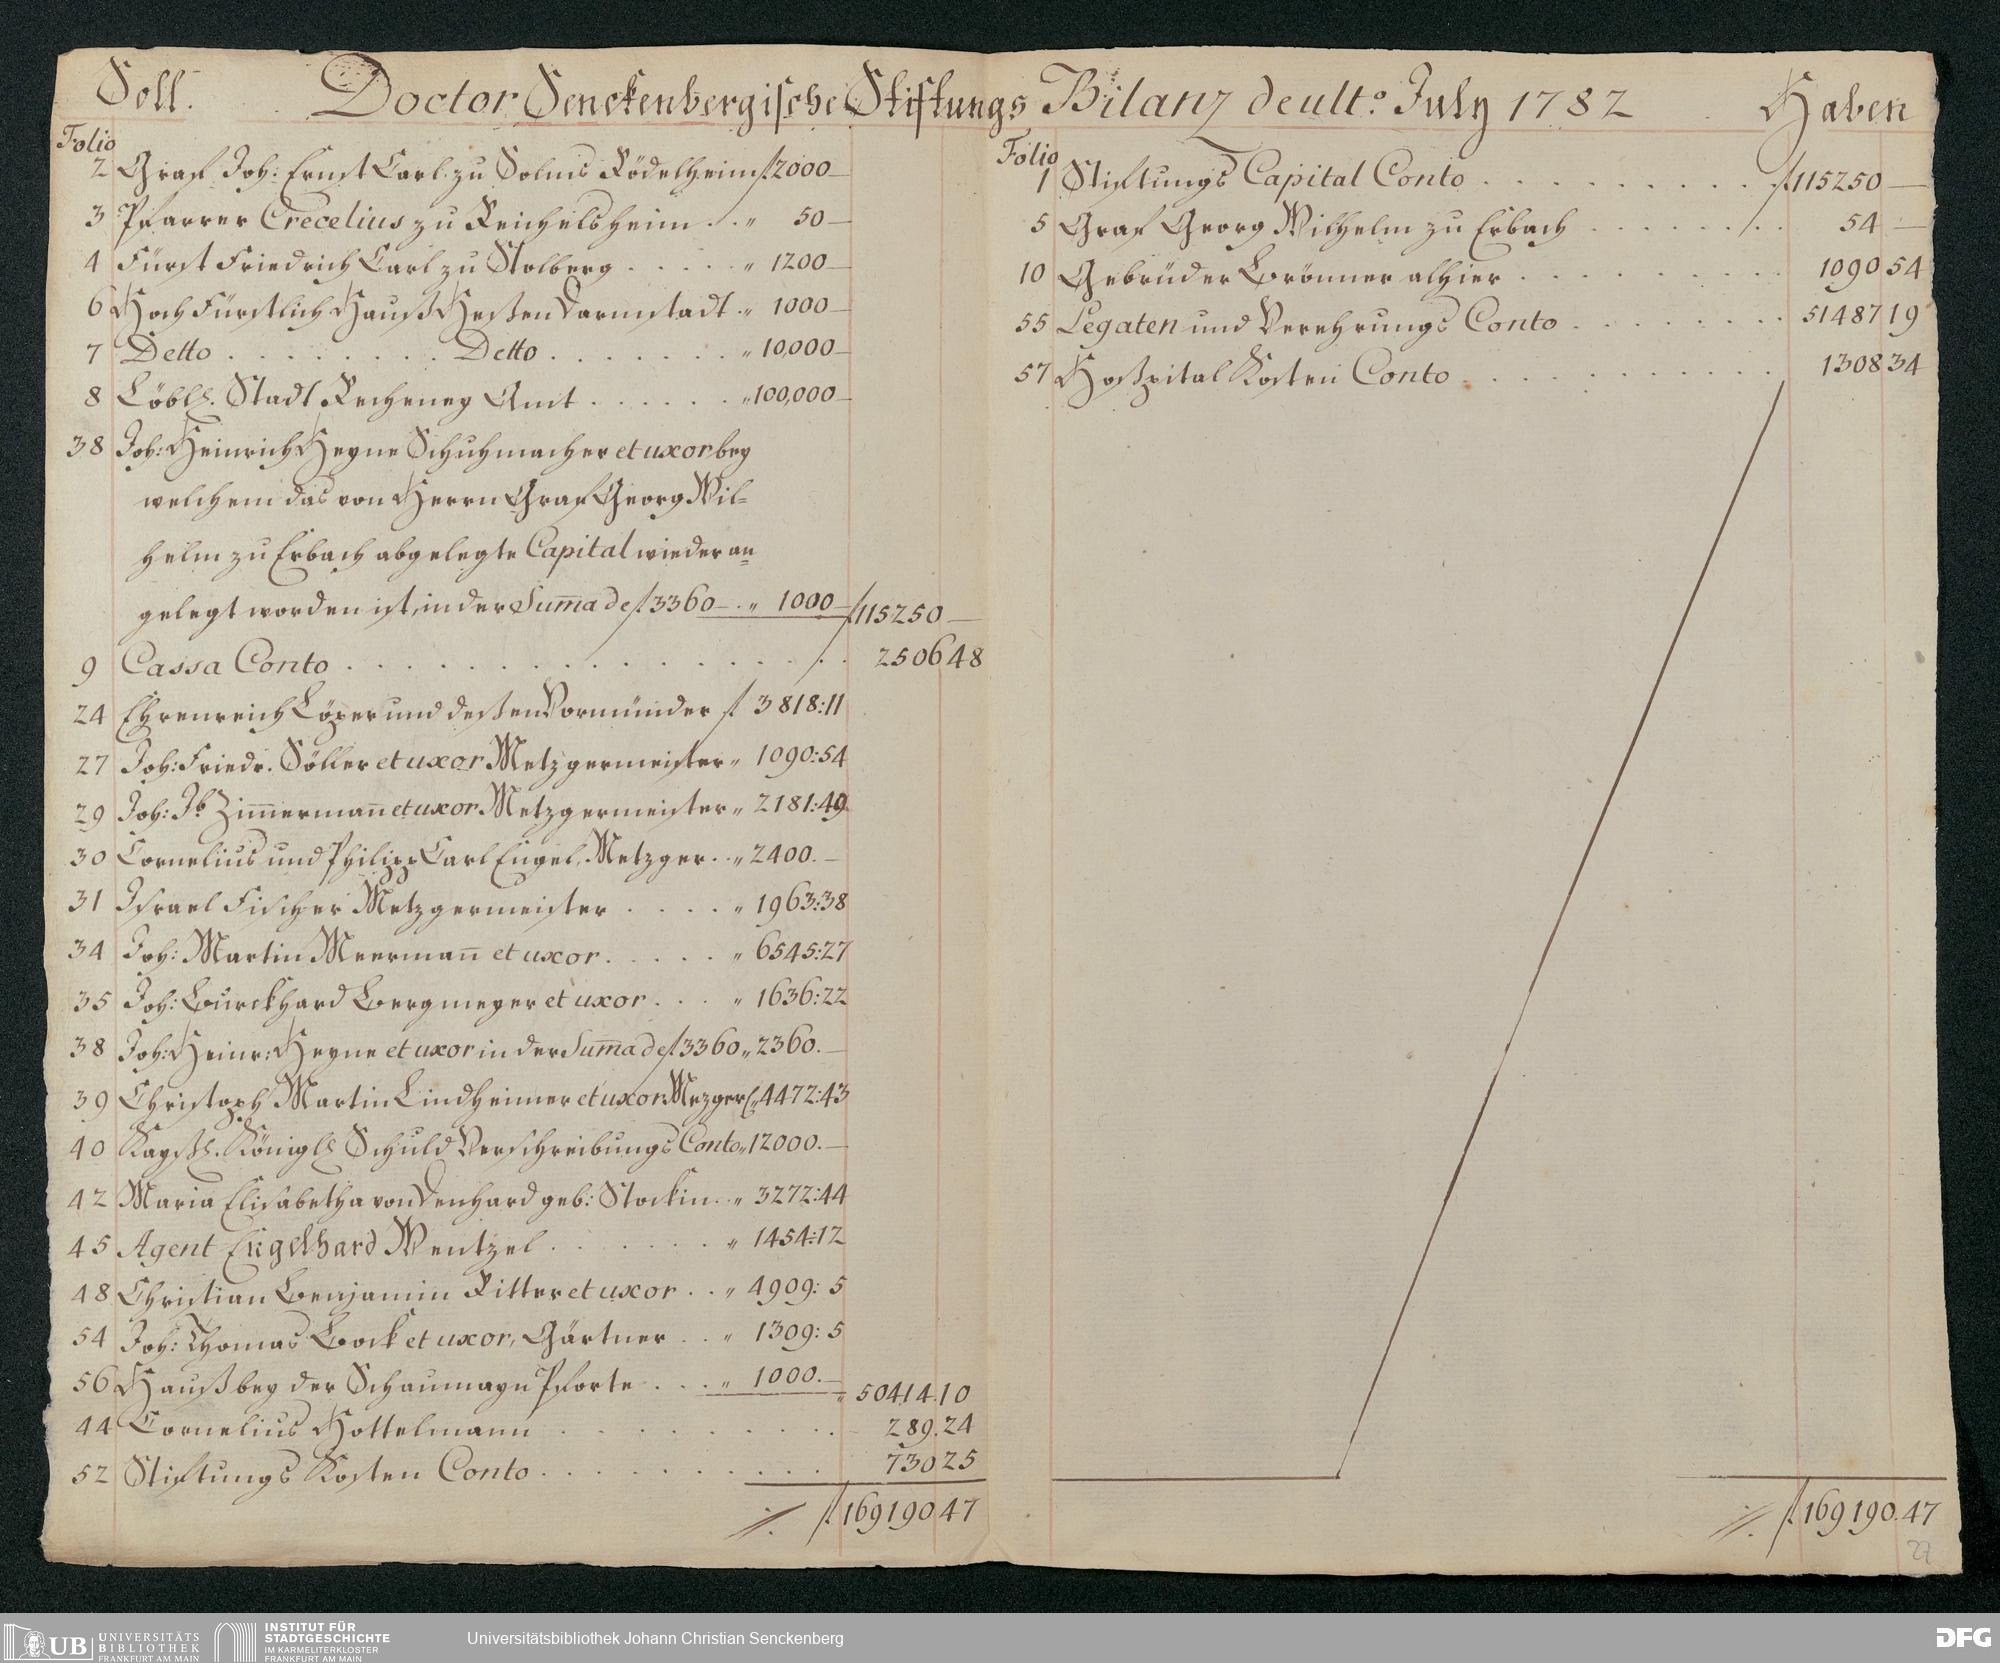 Soll. Doctor Senckenbergische Stiftungs Bilanz de ult.° July 1782 Haben
Folio
2 Graf Joh: Ernst Carl zu Solms Rödelheim f 2000 —
3 Pfarrer Crecelius zu Reichelsheim . . " 50 —
4 Fürst Friedrich Carl zu Stolberg . . . . . " 1200 —
6 Hoch Fürstlich Hauß Heßen Darmstadt . " 1000 —
7 Detto . . . . . . . . Detto . . . . . . . " 10,000 —
8 Löbl. Stadt Recheney Amt . . . . . . " 100,000 —
38 Joh: Heinrich Heyne Schuhmacher et uxor bey
welchem das von Herrn Graf Georg Wil=
helm zu Erbach abgelegte Capital wieder an=
gelegt worden ist, in der Suma de f 3360 — . " 1000 — f 115250 —
9 Cassa Conto . . . . . . . . . . . . . . 2506 48
24 Ehrenreich Löper und deßen Vormünder f 3818:11
27 Joh: Friedr. Söller et uxor Metzgermeister " 1090:54
29 Joh: Jb Zimermann et uxor Metzgermeister " 2181:49
30 Cornelius und Philipp Carl Engel, Metzger . . " 2400. —
31 Israel Fischer Metzgermeister . . . . " 1963:38
34 Joh: Martin Meermann et uxor . . . . . " 6545:27
35 Joh: Burckhard Bergmeyer et uxor . . . " 1636:22
38 Joh: Heinr: Heyne et uxor in der Suma de f 3360 " 2360. —
39 Christoph Martin Lindheimer et uxor Mezger " 4472:43
40 Kayßl. Königl. Schuld Verschreibungs Conto " 12000. —
42 Maria Elisabetha von Denhard geb: Stockin . . " 3272:44
45 Agent Engelhard Wentzel . . . . . . . " 1454:12
48 Christian Benjamin Ritter et uxor . . " 4909: 5
54 Joh: Thomas Bock et uxor, Gärtner . . " 1309: 5
56 Hauß bey der Schaumayn Pforte . . . " 1000. — " 50414.10
44 Cornelius Hottelmann . . . . . . . . . . 289.24
52 Stiftungs Kosten Conto . . . . . . . . . 730 25
f 169190 47
Folio
1 Stiftungs Capital Conto . . . . . . . . . f 115250 —
5 Graf Georg Wilhelm zu Erbach . . . . . . . 54 —
10 Gebrüder Brönner alhier . . . . . . . . . 1090 54
55 Legaten und Verehrungs Conto . . . . . . . 51487 19
57 Hoßpital Kosten Conto . . . . . . . . . . . 1308 34
f 169190. 47
27
UB UNIVERSITÄTS
BIBLIOTHEK
FRANKFURT AM MAIN
INSTITUT FÜR
STADTGESCHICHTE
IM KARMELITERKLOSTER
FRANKFURT AM MAIN
Universitätsbibliothek Johann Christian Senckenberg
DFG